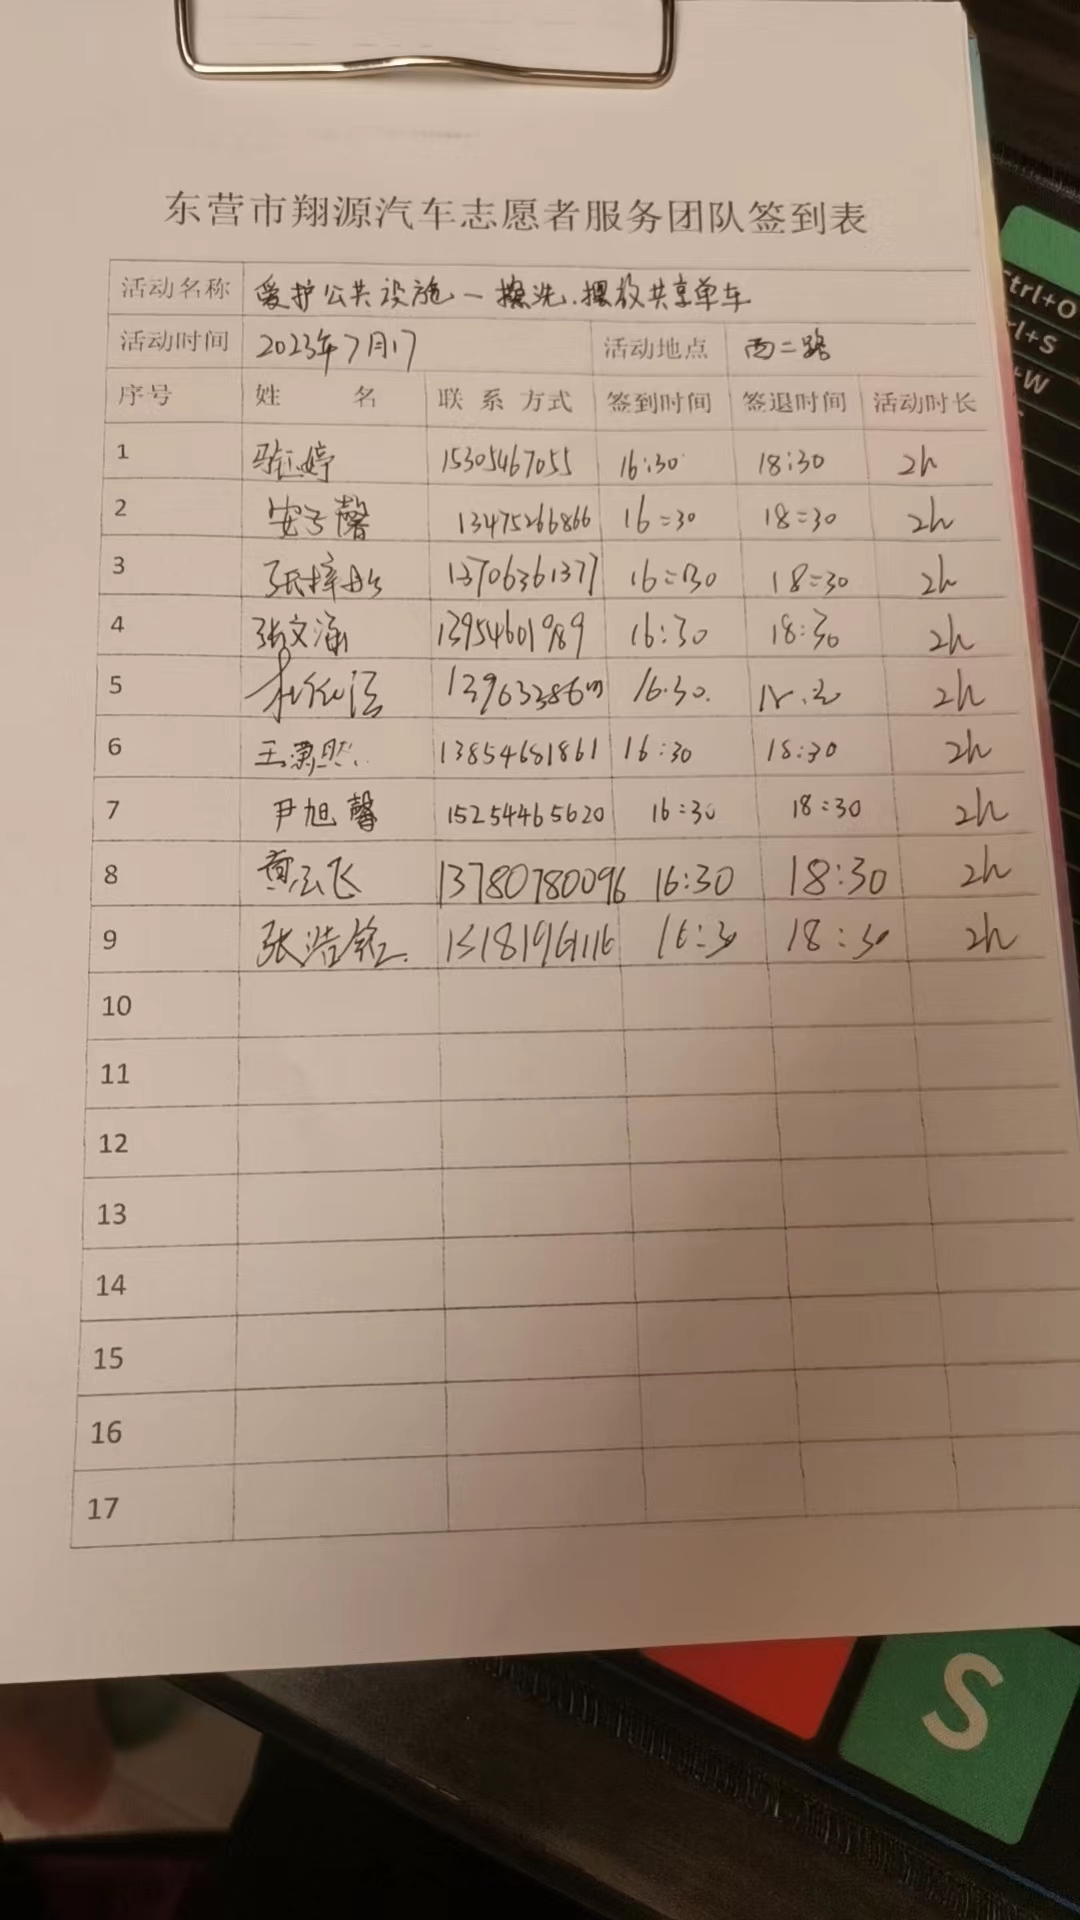 东营市翔源汽车志愿者服务团队签到表
活动名称 爱护公共设施—擦洗、摆放共享单车
活动时间 2023年7月17 活动地点 西二路
序号 姓 名 联 系 方式 签到时间 签退时间 活动时长
1 婷 15305467055 16:30 18:30 2h
2 安子馨 13475266866 16:30 18:30 2h
3 张梓 13706361377 16:30 18:30 2h
4 张文涵 13954601989 16:30 18:30 2h
5 16.30. 2h
6 王潇然 13854681861 16:30 18:30 2h
7 尹旭馨 15254465620 16:30 18:30 2h
8 黄云飞 13780780096 16:30 18:30 2h
9 张浩铭 16:30 18:30 2h
10
11
12
13
14
15
16
17
trl+O
rl+S
+W
S